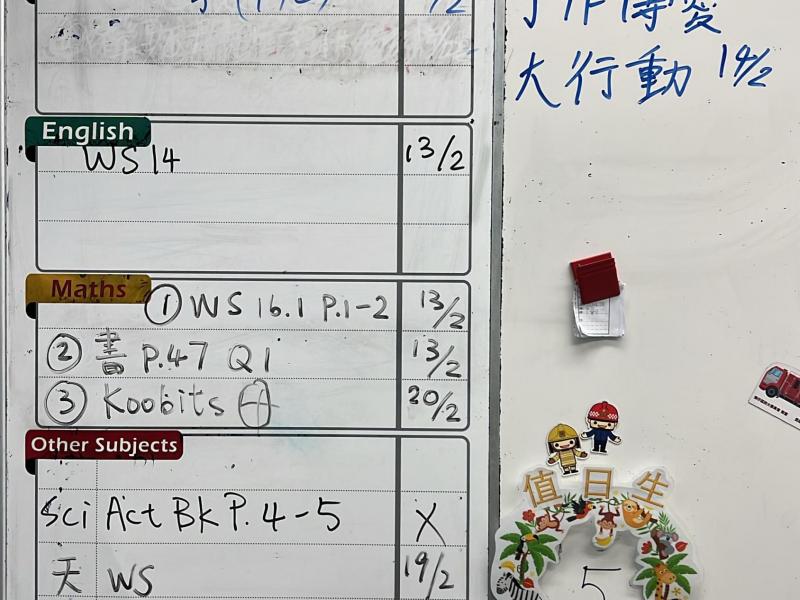 大行動 19/2
English
WS 14 13/2
Maths
① WS 16.1 P.1-2 13/2
② 書 P.47 Q1 13/2
③ Koobits 20/2
Other Subjects
Sci Act Bk P. 4-5 X
天 WS 19/2
值日生
5